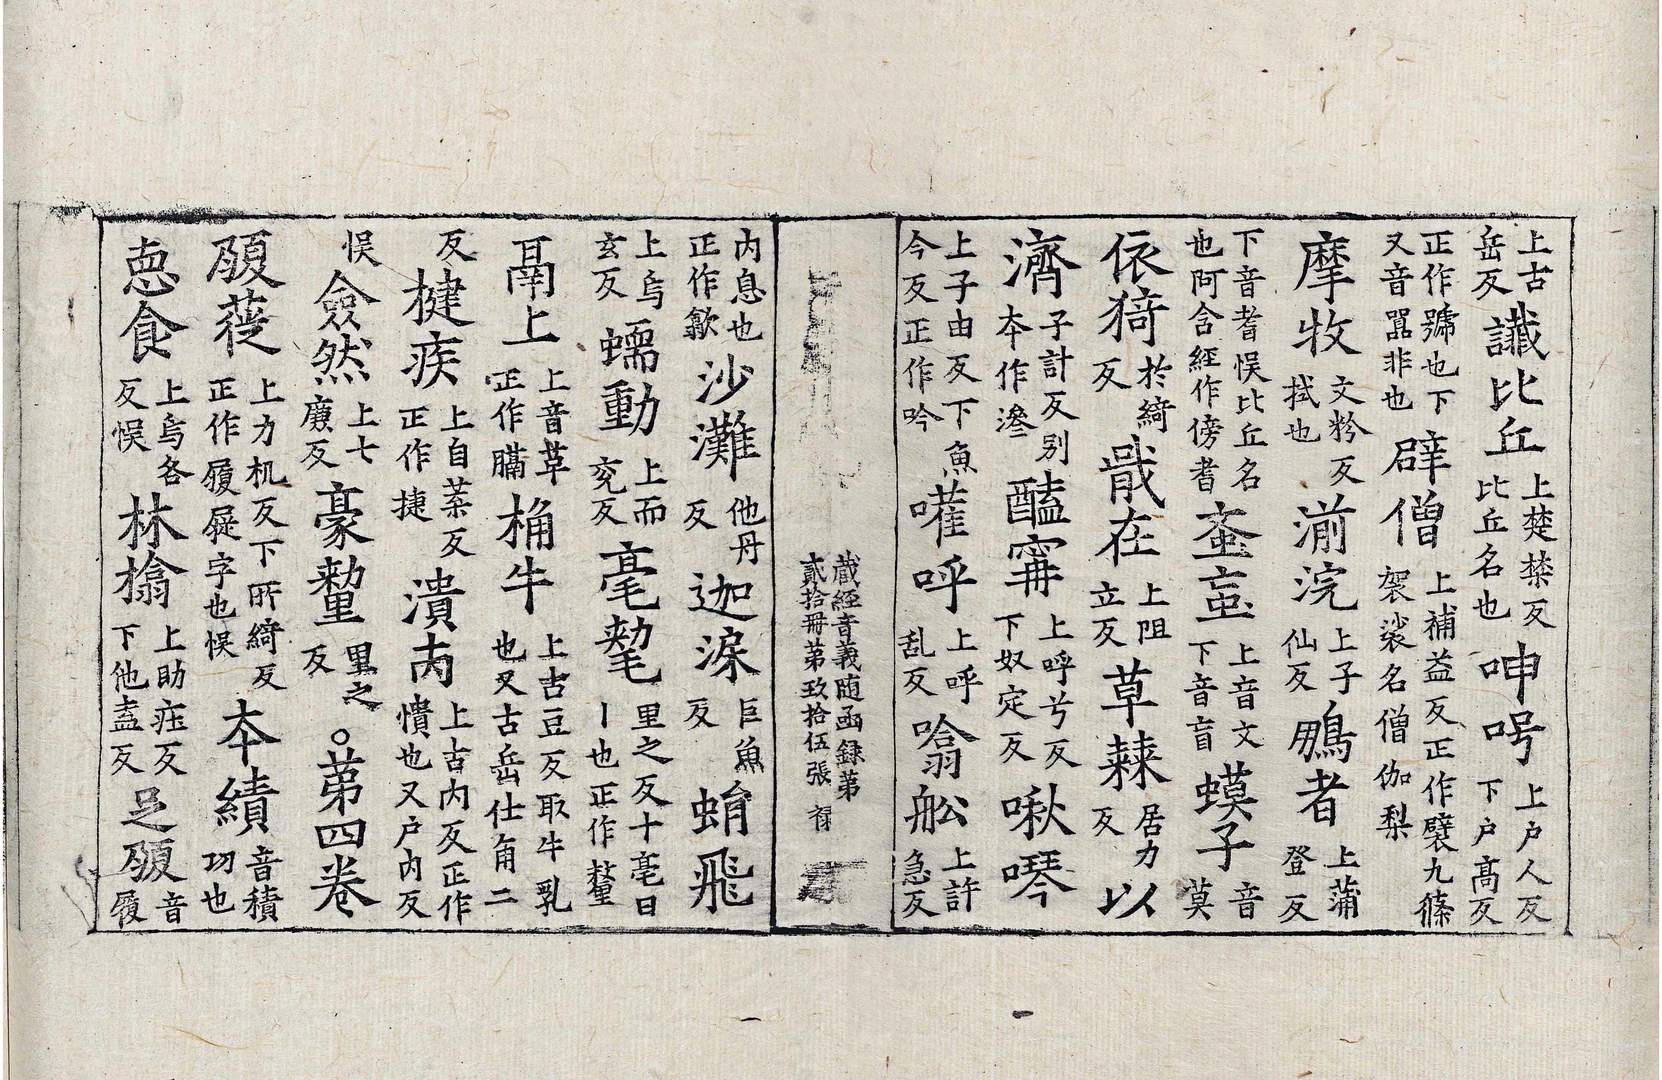 上古岳反讖比丘上楚禁反比丘名也呻呺上戶人反下戶高反
正作號也下又音嚣非也礔僧上補益反正作襞九條袈裟名僧伽梨
摩牧文粉反拭也湔浣上子仙反鵬者上蒲登反
下音耆悮比丘名也阿含經作傍耆蚉蝱上音文下音盲蟆子音莫
依猗於綺反戢在上阻立反草棘居力反以
濟子計反别夲作滲醯寗上呼兮反下奴定反啾噖
上子由反下魚今反正作吟嚾呼上呼乱反噏舩上許急反
藏經音義随函録第貳拾冊第玖拾伍張
内息也正作歙沙灘他丹反迦㴃巨魚反蜎飛
上烏玄反蠕動上而兖反毫氂里之反十毫曰丨也正作氂
鬲上上音革正作膈桷牛上古豆反取牛乳也又古岳仕角二
反楗疾上自葉反正作捷潰内上古内反正作憒也又戶内反
悮僉然上七廉反豪釐里之反。第四卷
䫂蓰上力机反下所綺反正作履屣字也悮夲績音積功也
恴食上烏各反悮林檎上助庄反下他盍反足䫂音履